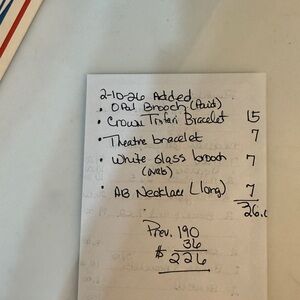 2-10-26 Added
• Opal Brooch (Paid)
• Crown Trifari Bracelet 15
• Theatre bracelet 7
• White Glass brooch 7
• AB Necklace (long) 7
Prev. 190
36
$ 226